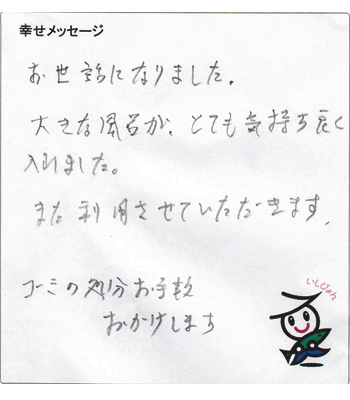 幸せメッセージ
お世話になりました。
大きな風呂が、とても気持ち良く
入れました。
また利用させていただきます。
ゴミの処分お手数
おかけします
いしぴょん